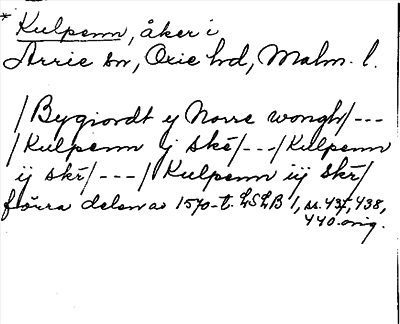 * Kulpenn, åker i
Arrie sn, Oxie hd, Malm. l.
/Bygiordt y Norre wongh/---
/Kulpenn ÿ skē/---/Kulpenn
ÿ skr/---/Kulpenn iÿ skr/
förra delen av 1570-t. LSLB 1, ss. 437, 438,
440. orig.